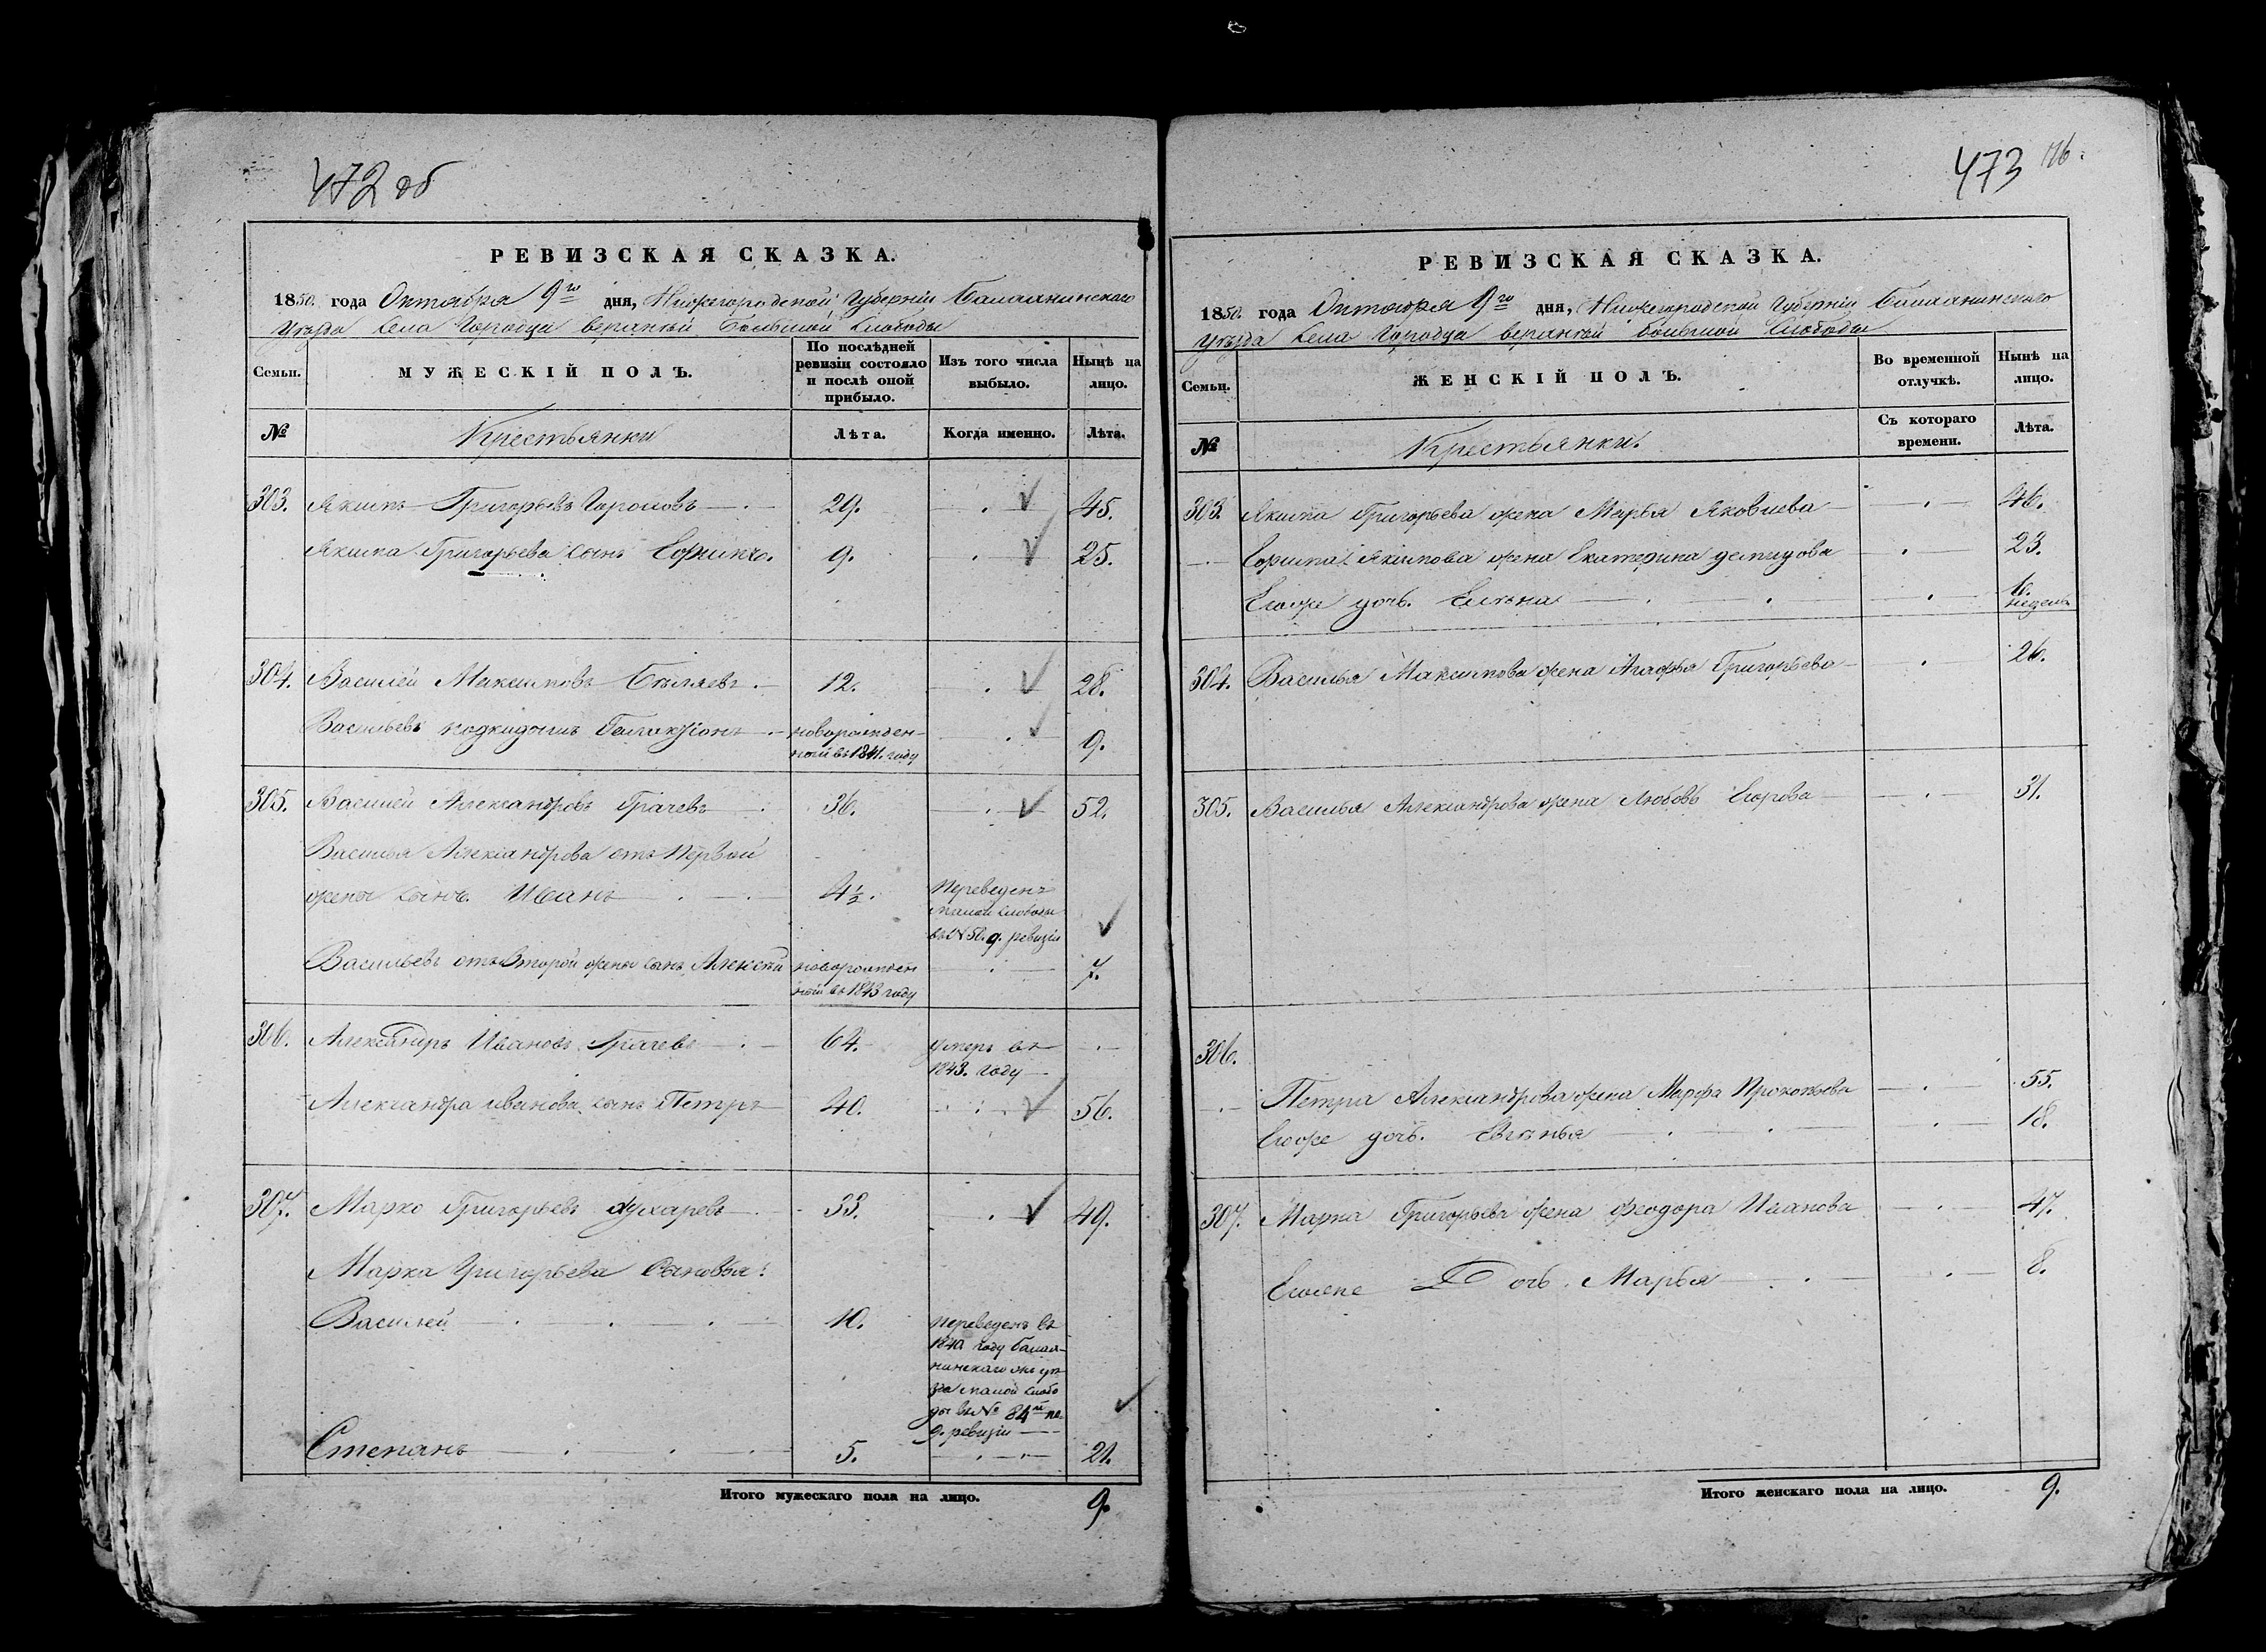 472 об
РЕВИЗСКАЯ СКАЗКА.
1850. года Октября 9го дня, Нижегородской Губерніи Балахнинскаго
Уѣзда Села Городца верхней Большой Слободы
Семьи.
МУЖЕСКІЙ ПОЛЪ.
По послѣдней ревизіи состояло и послѣ оной прибыло.
Изъ того числа выбыло.
Нынѣ на лицо.
№
Лѣта.
Когда именно.
Лѣта.
303. Якимъ Григорьевъ 29. 45.
Якима Григорьева сынъ 9. 25.
304. Василей Максимовъ Бѣляевъ 12. 28.
Васильевъ подкидышъ новорожден- 9.
ной въ 1841. году
305. Василей Александровъ Грачевъ 36. 52.
Василья Александрова отъ первой
жены сынъ Иванъ 4½. Переведенъ
малой слободы
въ № 50. 9. ревизіи
Васильевъ отъ второй жены сынъ Алексѣй новорожден 7.
ной въ 1843 году
306. Александръ Ивановъ Грачевъ 64. умеръ въ
1843. году
Александра Иванова сынъ Петръ 40. 56.
307. Марко Григорьевъ Духаревъ 33. 49.
Марка Григорьева Сыновья:
Василей 10. переведенъ въ
1840 году Балах-
нинскаго
малой слобо
ды въ № 84й по
9. ревизіи
Степанъ 5. 21.
Итого мужескаго пола на лицо. 9.
473
РЕВИЗСКАЯ СКАЗКА.
1850. года Октября 9го дня, Нижегородской Губерніи Балахнинскаго
Уѣзда Села Городца верхней Большой Слободы
Семьи.
ЖЕНСКІЙ ПОЛЪ.
Во временной отлучкѣ.
Нынѣ на лицо.
№
Крестьянки.
Съ котораго времени.
Лѣта.
303. Якима Григорьева жена Марья Яковлева 46.
Якимова жена Екатерина Демидова 23.
Егоже дочь Елѣна недель
304. Василья Максимова жена Агафья Григорьева 26.
305. Василья Александрова жена Любовь Егорова 31.
306.
Петра Александрова жена Марфа Прокопьева 55.
Егоже дочь 18.
307. Марка Григорьева жена Феодора Иванова 47.
Дочь Марья 8.
Итого женскаго пола на лицо. 9.